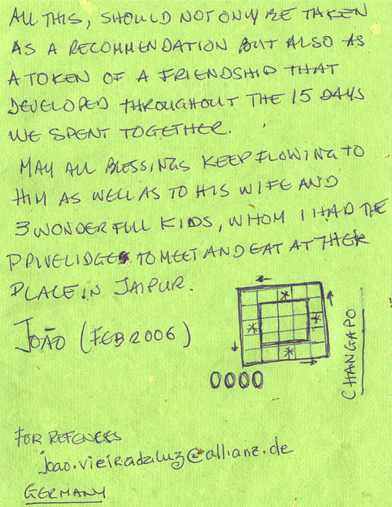 ALL THIS, SHOULD NOT ONLY BE TAKEN
AS A RECOMMENDATION BUT ALSO AS
A TOKEN OF A FRIENDSHIP THAT
DEVELOPED THROUGHOUT THE 15 DAYS
WE SPENT TOGETHER.
MAY ALL BLESSINGS KEEP FLOWING TO
HIM AS WELL AS TO HIS WIFE AND
3 WONDERFULL KIDS, WHOM I HAD THE
PRIVELIDGES TO MEET AND EAT AT THER
PLACE IN JAIPUR.
JOÃO (FEB 2006)
CHANGAPO
FOR REFENCES
joao.vieiradaluz@allianz.de
GERMANY